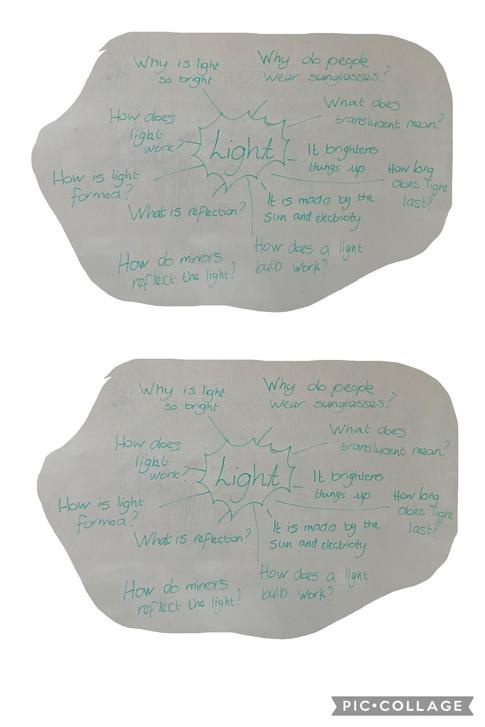 Why is light
so bright
Why do people
wear sunglasses?
What does
translucent mean?
How does
light
work?
Light
It brightens
things up
How long
does light
last?
How is light
formed?
What is reflection?
It is made by the
sun and electricity
How do mirrors
reflect the light?
How does a light
bulb work?
Why is light
so bright
Why do people
wear sunglasses?
What does
translucent mean?
How does
light
work?
Light
It brightens
things up
How long
does light
last?
How is light
formed?
What is reflection?
It is made by the
sun and electricity
How do mirrors
reflect the light?
How does a light
bulb work?
PIC•COLLAGE